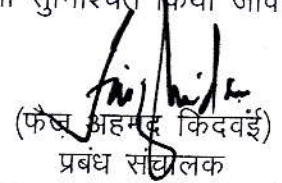 सुनिश्चित किया जाव
(फैज़ अहमद किदवई)
प्रबंध संचालक